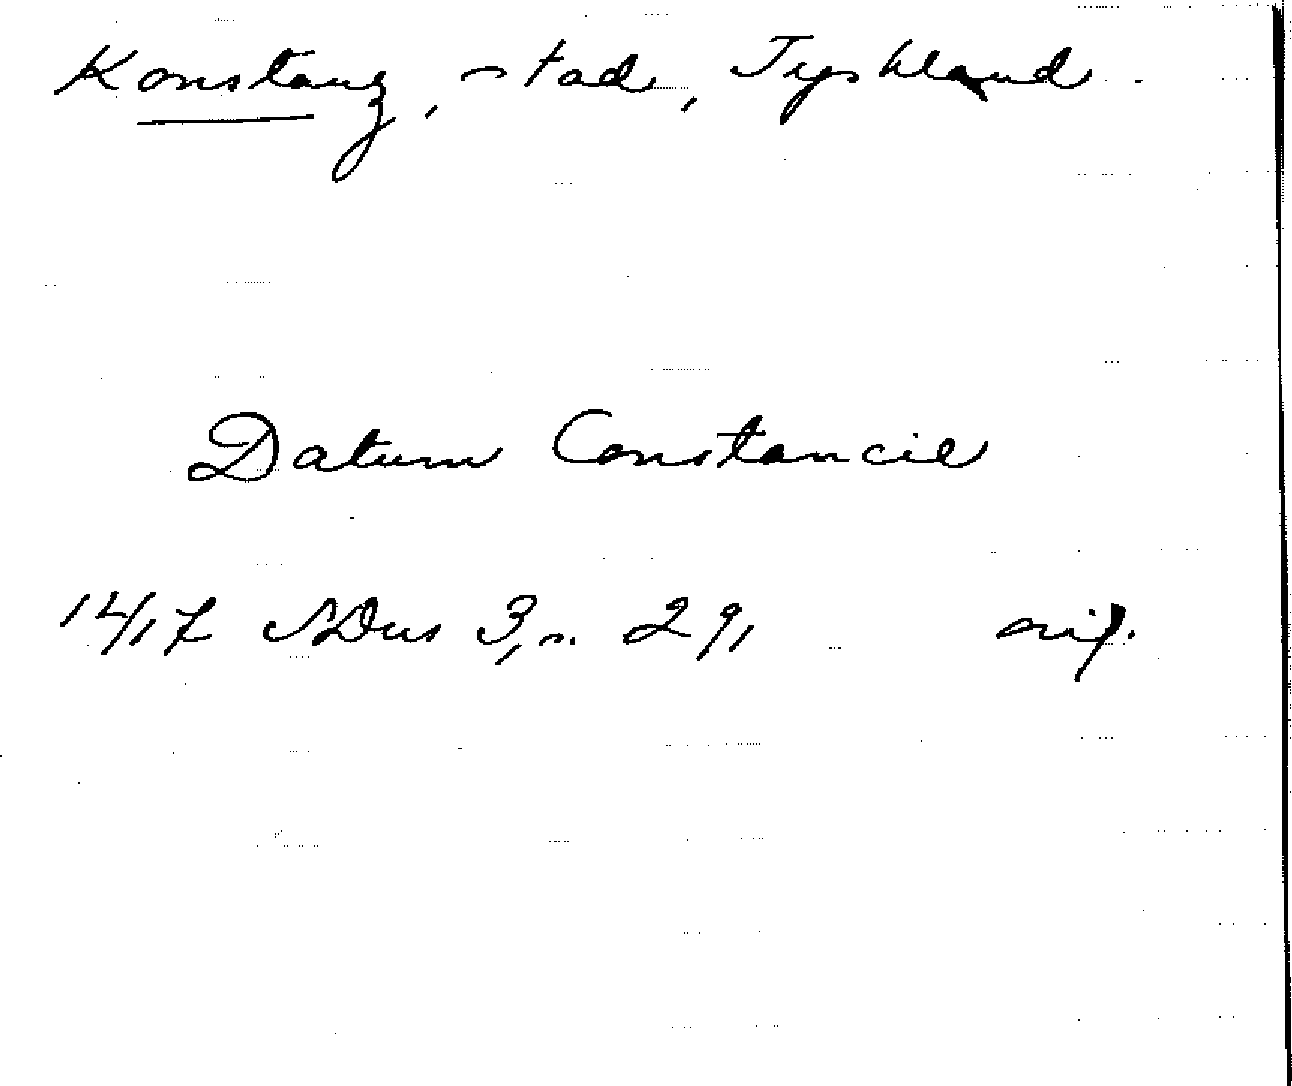 Konstanz, stad, Tyskland.
Datum Constancie
1417 SDns 3, s. 291 orig.